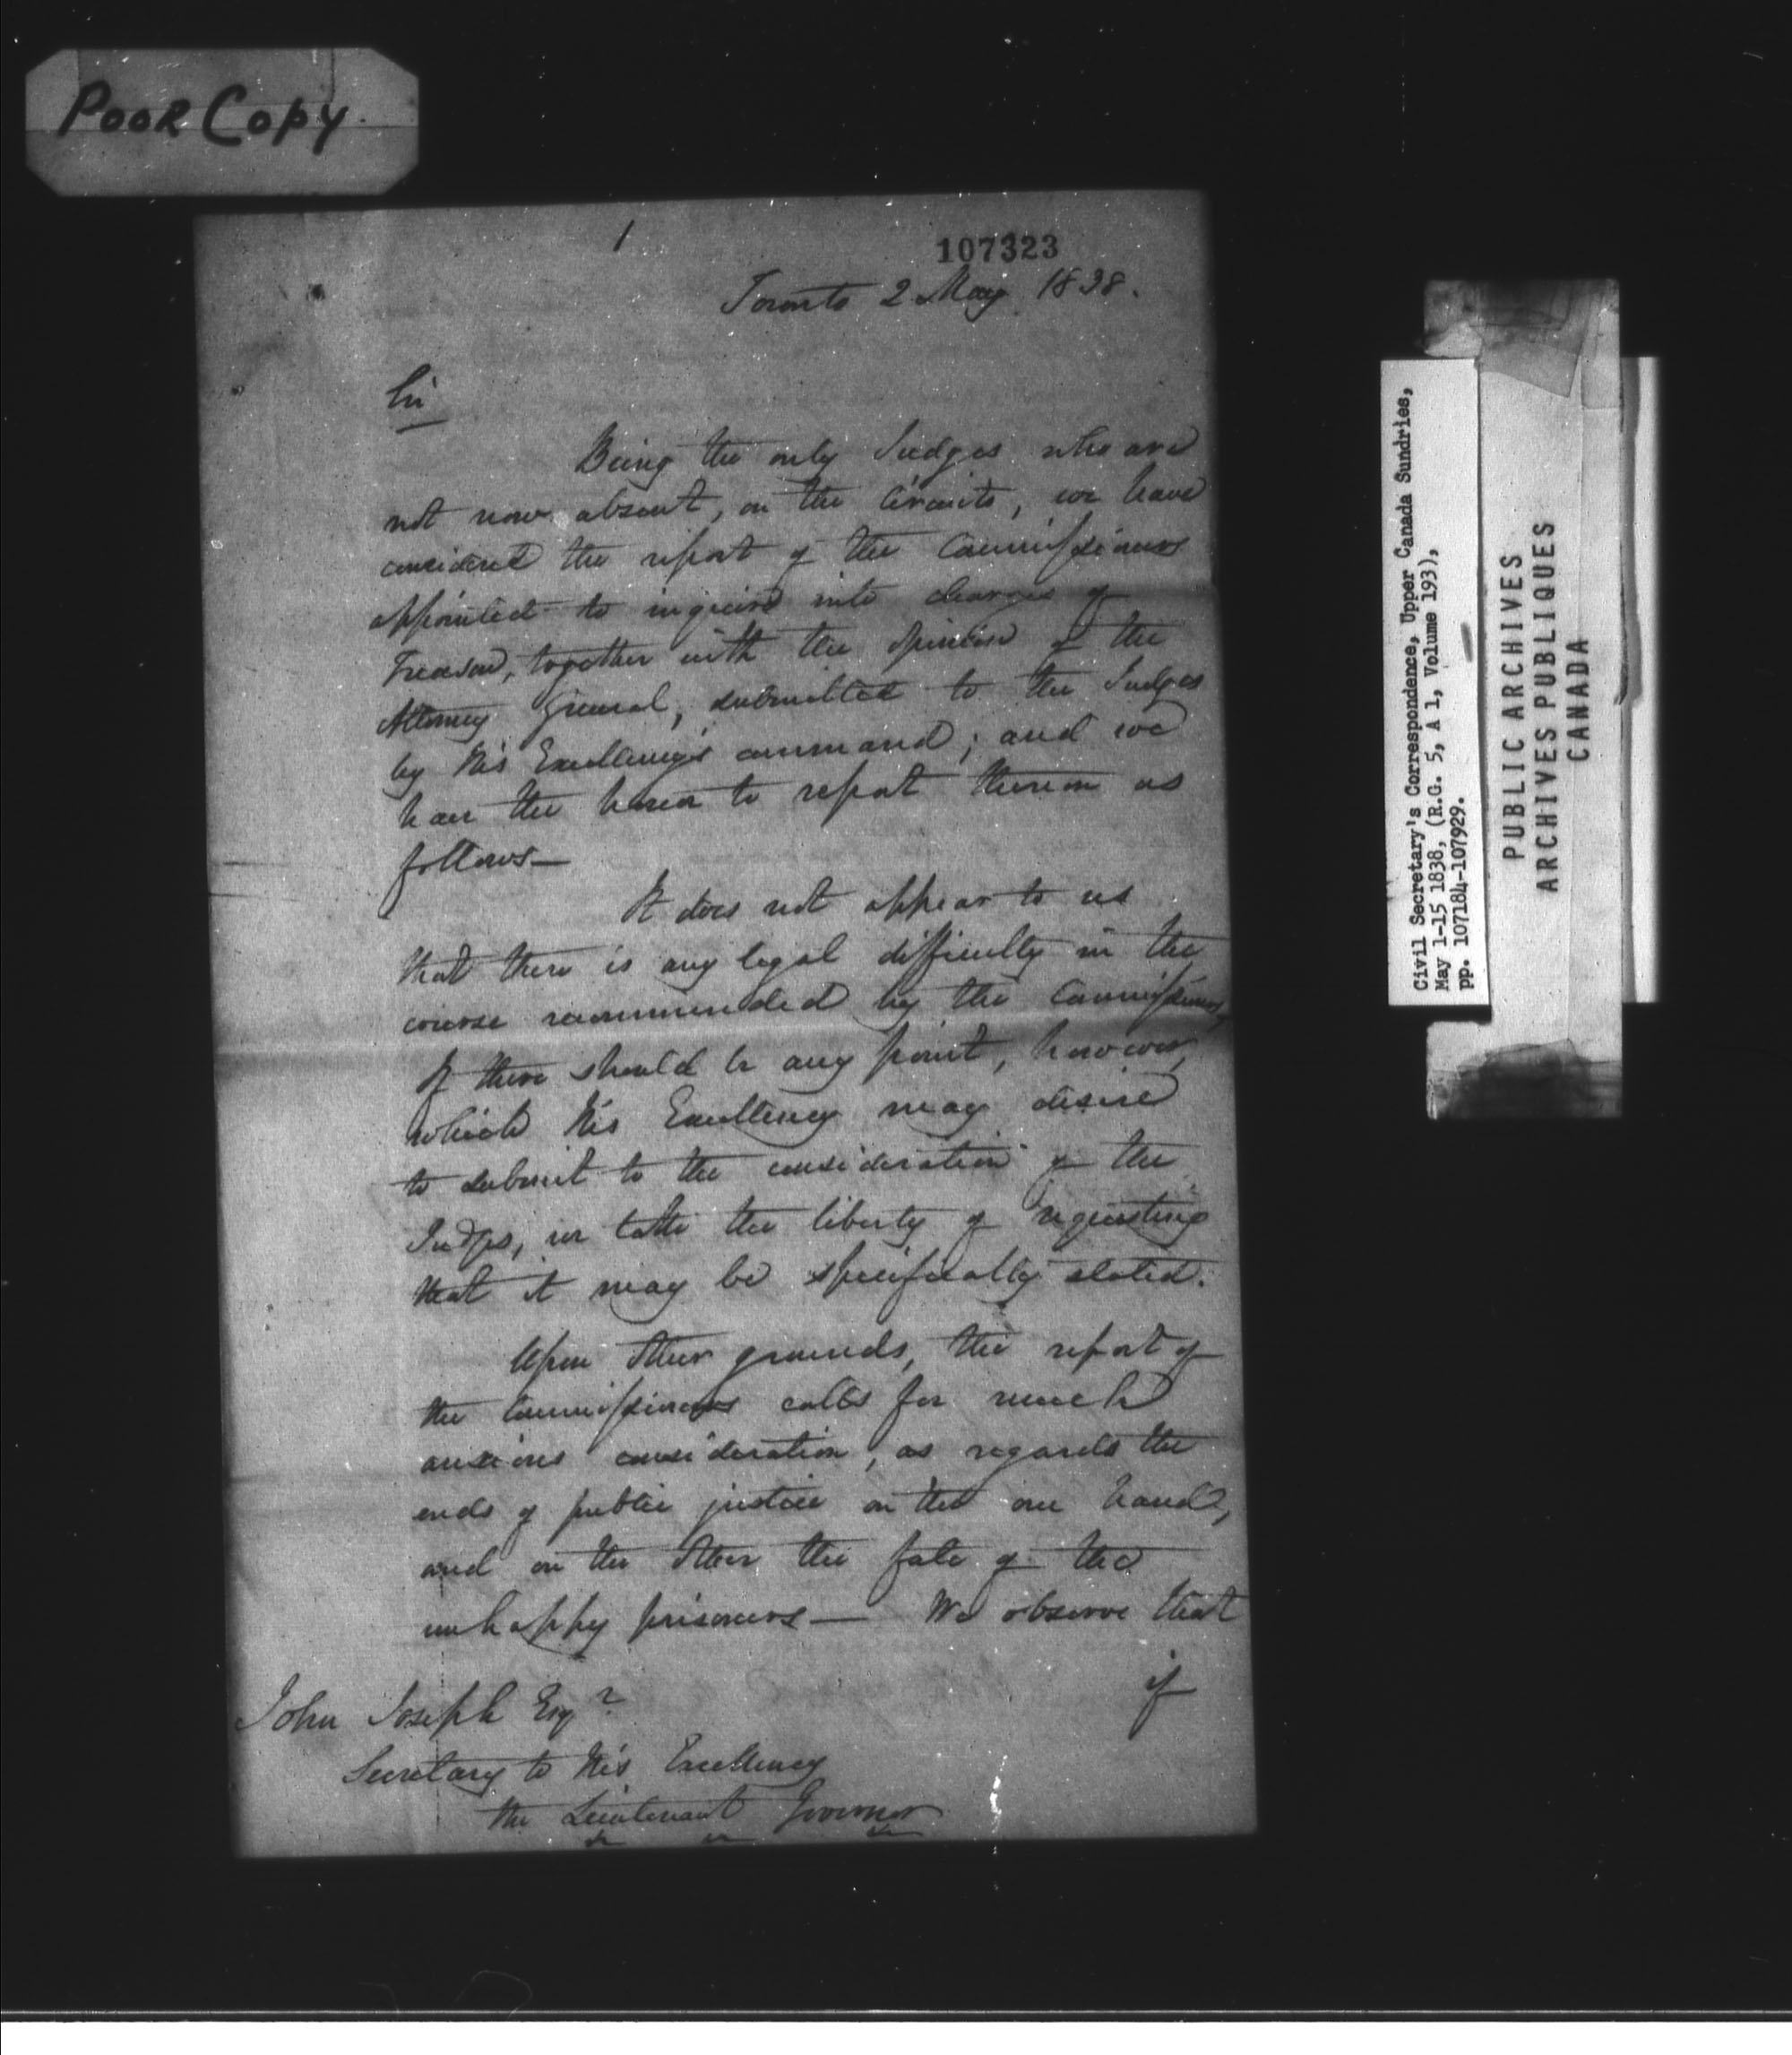 Poor Copy.
1
107323
Toronto 2 May 1838.
Sir
Being the only Judges who are
not now absent, on the Circuits, we have
considered the report of the Commissioners
appointed to inquire into charges of
Treason, together with the opinion of the
Attorney General, submitted to the Judges
by His Excellency's command; and we
have the honor to report thereon as
follows—
It does not appear to us
that there is any legal difficulty in the
course recommended by the Commissioners,
If there should be any point, however,
which His Excellency may desire
to submit to the consideration of the
Judges, we take the liberty of requesting
that it may be specifically stated.
Upon other grounds, the report of
the Commissioners calls for much
anxious consideration, as regards the
ends of public justice on the one hand,
and on the other the fate of the
unhappy prisoners— We observe that
if
John Joseph Esqr
Secretary to His Excellency
the Lieutenant Governor
Civil Secretary's Correspondence, Upper Canada Sundries,
May 1-15 1838, (R.G. 5, A 1, Volume 193),
pp. 107184-107929.
PUBLIC ARCHIVES
ARCHIVES PUBLIQUES
CANADA